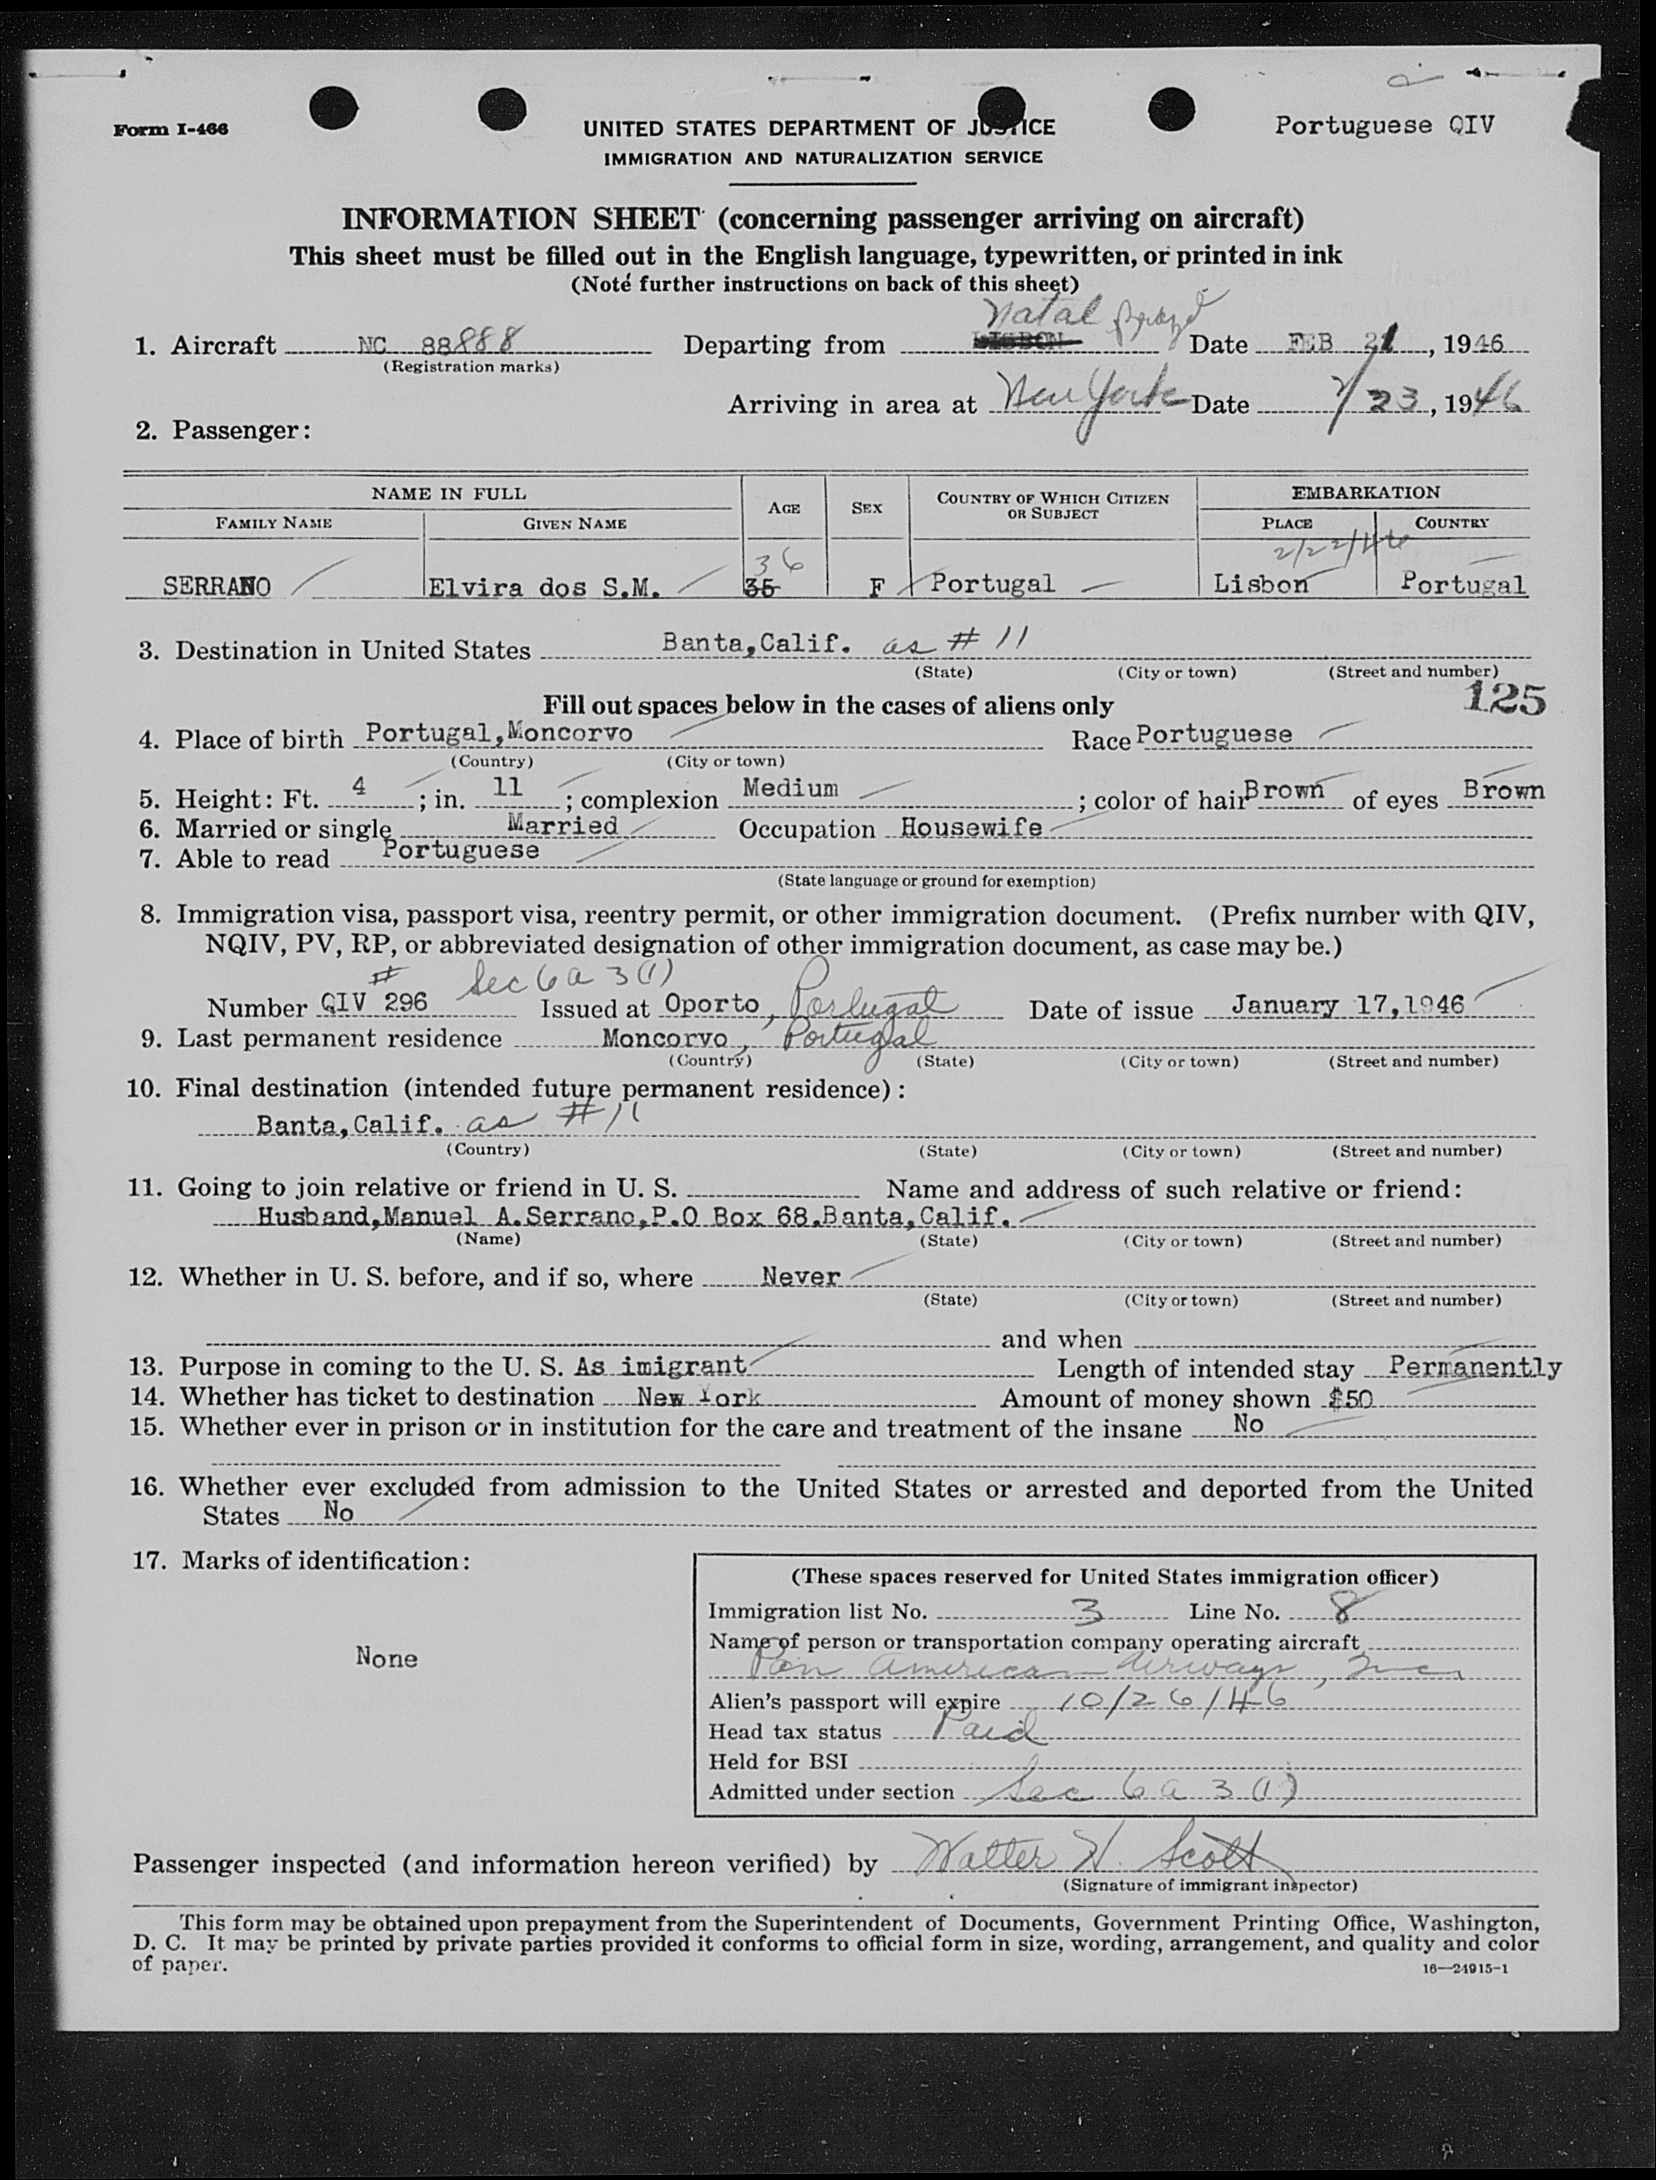 Form I-466
UNITED STATES DEPARTMENT OF JUSTICE
Portuguese QIV
IMMIGRATION AND NATURALIZATION SERVICE
INFORMATION SHEET (concerning passenger arriving on aircraft)
This sheet must be filled out in the English language, typewritten, or printed in ink
(Note further instructions on back of this sheet)
Natal Brazil
1. Aircraft NC 88888 Departing from LISBON Date FEB 21, 1946
(Registration marks)
Arriving in area at New York Date 2/23, 1946
2. Passenger:
NAME IN FULL AGE SEX COUNTRY OF WHICH CITIZEN OR SUBJECT EMBARKATION
FAMILY NAME GIVEN NAME PLACE COUNTRY
36 2/22/46
SERRANO Elvira dos S.M. 35 F Portugal Lisbon Portugal
3. Destination in United States Banta,Calif. as # 11
(State) (City or town) (Street and number)
125
Fill out spaces below in the cases of aliens only
4. Place of birth Portugal,Moncorvo Race Portuguese
(Country) (City or town)
5. Height: Ft. 4 ; in. 11 ; complexion Medium ; color of hair Brown of eyes Brown
6. Married or single Married Occupation Housewife
7. Able to read Portuguese
(State language or ground for exemption)
8. Immigration visa, passport visa, reentry permit, or other immigration document. (Prefix number with QIV,
NQIV, PV, RP, or abbreviated designation of other immigration document, as case may be.)
# Sec 6a 3(1)
Number QIV 296 Issued at Oporto, Portugal Date of issue January 17,1946
9. Last permanent residence Moncorvo, Portugal
(Country) (State) (City or town) (Street and number)
10. Final destination (intended future permanent residence):
Banta,Calif. as #11
(Country) (State) (City or town) (Street and number)
11. Going to join relative or friend in U. S. Name and address of such relative or friend:
Husband,Manuel A.Serrano,P.O Box 68,Banta,Calif.
(Name) (State) (City or town) (Street and number)
12. Whether in U. S. before, and if so, where Never
(State) (City or town) (Street and number)
and when
13. Purpose in coming to the U. S. As imigrant Length of intended stay Permanently
14. Whether has ticket to destination New York Amount of money shown $50
15. Whether ever in prison or in institution for the care and treatment of the insane No
16. Whether ever excluded from admission to the United States or arrested and deported from the United
States No
17. Marks of identification:
None
(These spaces reserved for United States immigration officer)
Immigration list No. 3 Line No. 8
Name of person or transportation company operating aircraft
Pan American Airways, Inc.
Alien's passport will expire 10/26/46
Head tax status Paid
Held for BSI
Admitted under section Sec 6a 3(1)
Passenger inspected (and information hereon verified) by Walter H. Scott
(Signature of immigrant inspector)
This form may be obtained upon prepayment from the Superintendent of Documents, Government Printing Office, Washington,
D. C. It may be printed by private parties provided it conforms to official form in size, wording, arrangement, and quality and color
of paper.
16—24915-1